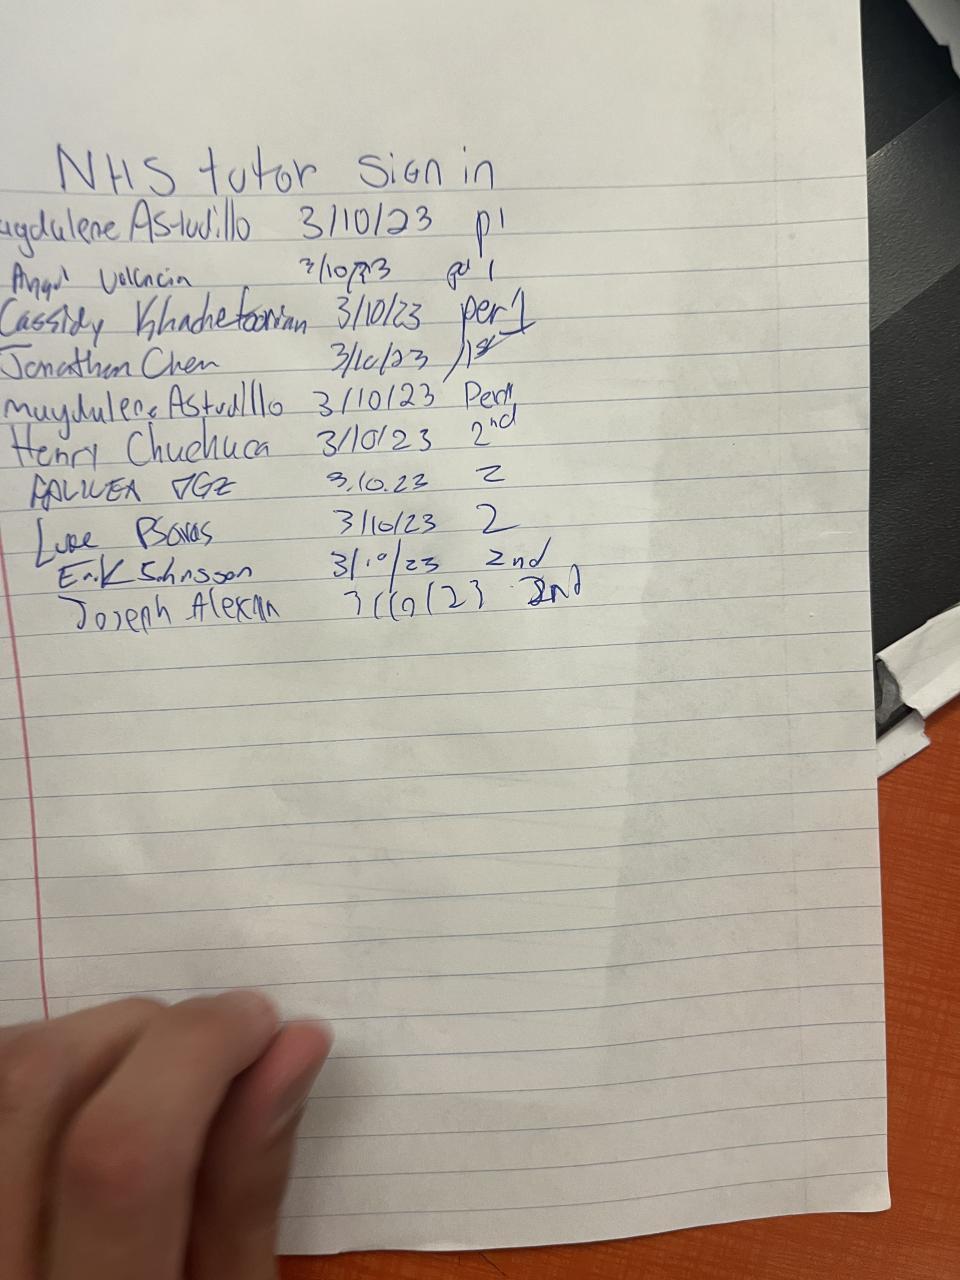 NHS tutor sign in
agdulene Astudillo 3/10/23 p1
Angel Valencia 3/10/23 pd 1
Cassidy Khachetoorian 3/10/23 per 1
Jonathan Chen 3/10/23 1st
magdulene Astudillo 3/10/23
Henry Chuchuca 3/10/23 2nd
3.10.23 2
3/10/23 2
Erik Johnsson 3/10/23 2nd
Joseph 3/10/23 2nd